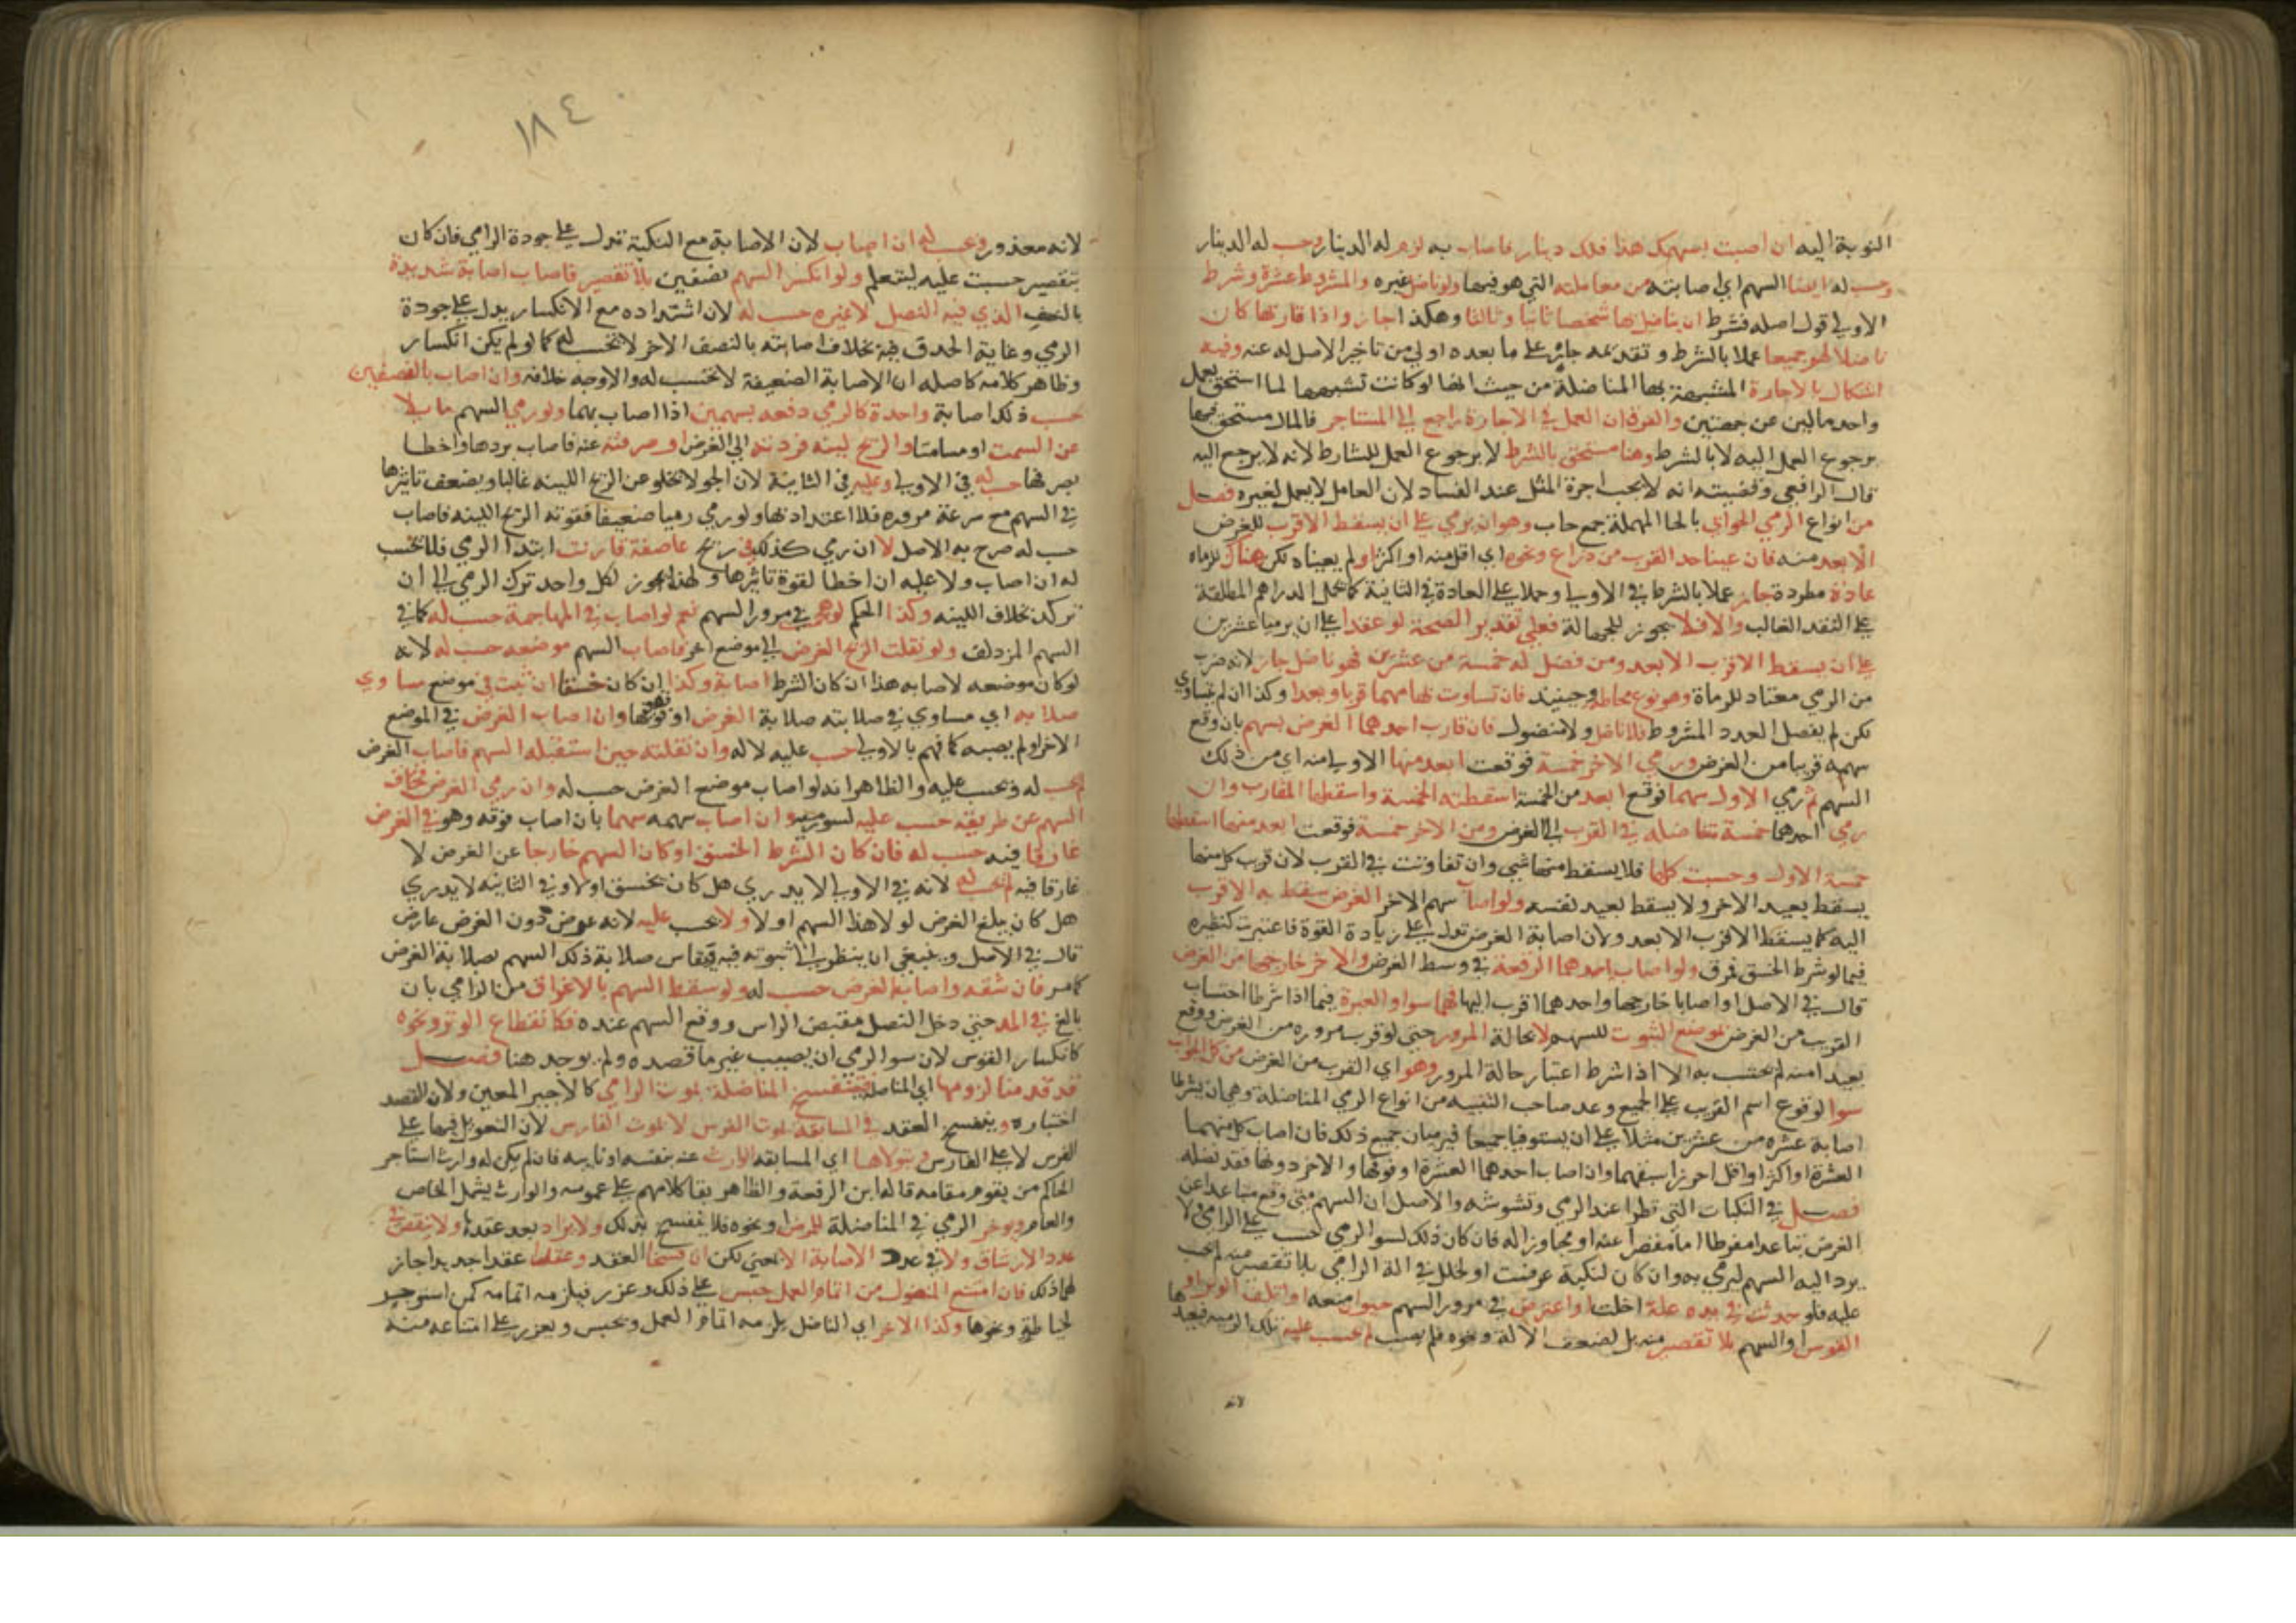 النوبة اليه ان اصبت بسهمك هذا فلك دينار فاصاب به لزم له الدينار وحسب له الدينار
وحسب له ايضا السهم اي اصابته من معاملته التي هو فيها ولو ناضل غيره والمشروط عشرة وشرط
الاولى قول اصله فشرط ان يناضل بها شخصا ثانيا وثالثا وهكذا اجاز واذا فاز بها كان
ناضلا لهم جميعا عملا بالشرط وتقدمه جائز على ما بعده اولى من تاخير الاصل له عنه وفيه
اشكال بالاجارة المشبهة بها المناضلة من حيث انها لو كانت تشبهها لما استحق بعمل
واحد مالين عن جهتين والفرق ان العمل في الاجارة راجع الى المستاجر فالمال مستحق فيها
برجوع العمل اليه لا بالشرط وهنا مستحق بالشرط لا برجوع العمل للشارط لانه لا يرجع اليه
قال الرافعي وقضيته انه لا يجب اجرة المثل عند الفساد لان العامل لا يعمل لغيره فصل
من انواع الرمي الحوابي بالحا المهملة جمع حاب وهو ان يرمي على ان يسقط الاقرب للغرض
الابعد منه فان عينا حد القرب من ذراع ونحوه اي اقل منه او اكثر او لم يعيناه لكن هناك للرماه
عادة مطردة جاز عملا بالشرط في الاولى وحملا على العادة في الثانية كما تحمل الدراهم المطلقة
على النقد الغالب والا فلا يجوز للجهالة فعلى تقدير الصحة لو عقدا على ان يرميا عشرين
على ان يسقط الاقرب الابعد ومن فضل له خمسة من عشرين فهو ناضل جاز لانه ضرب
من الرمي معتاد للرماة وهو نوع محاطة وحينئذ فان تساوت سهامهما قربا وبعدا وكذا ان لم يتساوي
لكن لم يفضل العدد المشروط فلا ناضل ولا منضول فان قارب احدهما الغرض بسهم بان وقع
سهمه قريبا من الغرض ورمى الاخر خمسة فوقعت ابعد منها الاولى منه اي من ذلك
السهم ثم رمي الاول سهما فوقع ابعد من الخمسة اسقطته الخمسة واسقطها المقارب وان
رمى احدهما خمسة متفاضلة في القرب الى الغرض ومن الاخر خمسة فوقعت ابعد منها اسقطها
خمسة الاول وحسبت كلها فلا يسقط منها شي وان تفاوتت في القرب لان قريب كل منهما
يسقط بعيد الاخر ولا يسقط بعيد نفسه ولو اصاب سهم الاخر الغرض سقط به الاقرب
اليه كما يسقط الاقرب الابعد ولان اصابة الغرض تدل على زيادة القوة فاعتبرت كنظيره
فيما لو شرط الخسق فمرق ولو اصاب احدهما الرقعة في وسط الغرض والاخر خارجها من الغرض
قال في الاصل او اصابا خارجها واحدهما اقرب اليها فهما سوا والعبرة فيما اذا شرطا احتساب
القريب من الغرض بموضع الثبوت للسهم لا بحالة المرور حتى لو قرب مروره من الغرض ووقع
بعيدا منه لم يحتسب به الا اذا شرط اعتبار حالة المرور وهو اي القرب من الغرض من كل الجوانب
سوا لوقوع اسم القرب على الجميع وعد صاحب التنبيه من انواع الرمي المناضلة وهي ان يشرطا
اصابة عشره من عشرين مثلا على ان يستوفيا جميعا فيرميان جميع ذلك فان اصاب كل منهما
العشرة او اكثر او اقل احرزا سبقهما وان اصاب احدهما العشرة او فوقها والاخر دونها فقد نضله
فصل في النكبات التي تطرا عند الرمي وتشوشه والاصل ان السهم متى وقع متباعدا عن
الغرض تباعدا مفرطا اما مقصرا عنه او مجاوزا له فان كان ذلك لسو الرمي حسب على الرامي ولا
يرد اليه السهم ليرمي به وان كان لنكبة عرضت او لخلل في الة الرامي بلا تقصير منه لم يحسب
عليه فلو حدثت في يده علة اخلت او اعترض في مرور السهم حيوان منعه او انقطع الوتر او
القوس او السهم بلا تقصير منه بل لضعف الالة ونحوه فلم يصب لم يحسب عليه تلك الرمية فيعيدها
لانه
١٨٤
لانه معذور وتحسب له ان اصاب لان الاصابة مع النكبة تدل على جودة الرامي فان كان
بتقصير حسبت عليه ليتعلم ولو انكسر السهم نصفين بلا تقصير فاصاب اصابة شديدة
بالنصف الذي فيه النصل لا غيره حسب له لان اشتداده مع الانكسار يدل على جودة
الرمي وغاية الحذق فيه بخلاف اصابته بالنصف الاخر لا تحسب له كما لو لم يكن انكسار
وظاهر كلامه كاصله ان الاصابة الضعيفة لا تحتسب له والاوجه خلافه وان اصاب بالنصفين
حسب ذلك اصابة واحدة كالرمي دفعة بسهمين اذا اصاب بهما ولو رمى السهم مايلا
عن السمت او مسامتا والريح لينه فردته الى الغرض او صرفته عنه فاصاب بردها واخطا
بصرفها حسب له في الاولى وعليه في الثانية لان الجو لا يخلو عن الريح اللينه غالبا ويضعف تاثيرها
في السهم مع سرعة مروره فلا اعتداد بها ولو رمى رميا ضعيفا فقوته الريح اللينه فاصاب
حسب له صرح به الاصل لا ان رمى كذلك في ريح عاصفة قارنت ابتدا الرمي فلا تحسب
له ان اصاب ولا عليه ان اخطا لقوة تاثيرها ولهذا يجوز لكل واحد ترك الرمي الى ان
تركد بخلاف اللينه وكذا الحكم لو هجمت في مرور السهم نعم لو اصاب في المهاجمة حسب له كما في
السهم المزدلف ولو نقلت الريح الغرض الى موضع اخر فاصاب السهم موضعه حسب له لانه
لو كان موضعه لاصابه هذا ان كان الشرط اصابة وكذا ان كان خسقا ان ثبت في موضع مساوي
صلابه اي مساوي في صلابته صلابة الغرض او فوقها وان اصاب الغرض في الموضع
الاخر او لم يصبه كما فهم بالاولى حسب عليه لا له وان نقلته حين استقبله السهم فاصاب الغرض
لم يحسب له ويحسب عليه والظاهر انه لو اصاب موضع الغرض حسب له وان رمى الغرض فخالف
السهم عن طريقه حسب عليه لسو رميه وان اصاب سهمه سهما بان اصاب فوقه وهو في الغرض
غارقا فيه حسب له فان كان الشرط الخسق او كان السهم خارجا عن الغرض لا
غارقا فيه لم يحسب له لانه في الاولى لا يدري هل كان يخسق او لا وفي الثانيه لا يدري
هل كان يبلغ الغرض لولا هذا السهم او لا ولا يحسب عليه لانه عرض دون الغرض عارض
قال في الاصل وينبغي ان ينظر الى ثبوته فيه وقياس صلابة ذلك السهم بصلابة الغرض
كما مر فان شقه واصاب الغرض حسب له ولو سقط السهم بالاغراق من الرامي بان
بالغ في المد حتى دخل النصل مقبض الراس ووقع السهم عنده فكانقطاع الوتر ونحوه
كانكسار القوس لان سو الرمي ان يصيب غير ما قصده ولم يوجد هنا فصل
قد قدمنا لزومها اي المناضلة فتنفسخ المناضلة بموت الرامي كالاجير المعين ولان القصد
اختباره وينفسخ العقد في المسابقة بموت الفرس لا بموت الفارس لان التعويل فيها على
الفرس لا على الفارس ويتولاها اي المسابقه الوارث عنه بنفسه او نايبه فان لم يكن له وارث استاجر
الحاكم من يقوم مقامه قاله ابن الرفعة والظاهر بقا كلامهم على عمومه والوارث يشمل الخاص
والعام ويوخر الرمي في المناضلة للمرض ونحوه فلا ينفسخ بذلك ولا يزاد بعد عقدها ولا ينقص في
عدد الارشاق ولا في عدد الاصابة الا حتى لكن ان فسخا العقد وعقدا عقدا جديدا جاز
لهما ذلك فان امتنع المنضول من اتمام العمل حبس على ذلك وعزر فيلزمه اتمامه كمن استوجر
لخياطة ونحوها وكذا الاخر اي الناضل يلزمه اتمام العمل ويحبس ويعزر على امتناعه منه